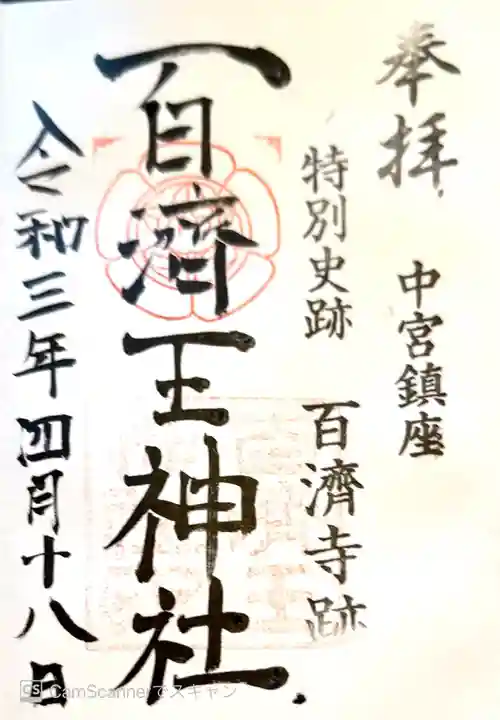 奉拝
中宮鎮座
特別史跡 百濟寺跡
百濟王神社
令和三年四月十八日
CS CamScannerでスキャン